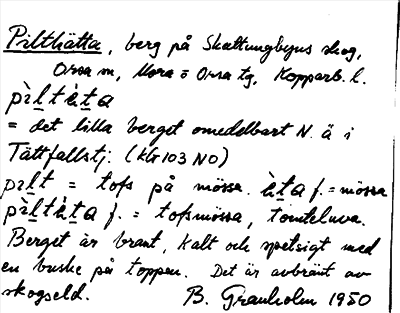 Pilthätta, berg på Skattungbyns skog,
Orsa sn, Mora o Orsa tg, Kopparb. l.
pìltèta
= det lilla berget omedelbart N. ä i
Tättfallstj. (kbl 103 NO)
pılt = tofs på mössa. èta f. = mössa
pìltèta f. = tofsmössa, tomteluva.
Berget är brant, kalt och spetsigt med
en buske på toppen. Det är avbränt av
skogseld. B. Granholm 1950